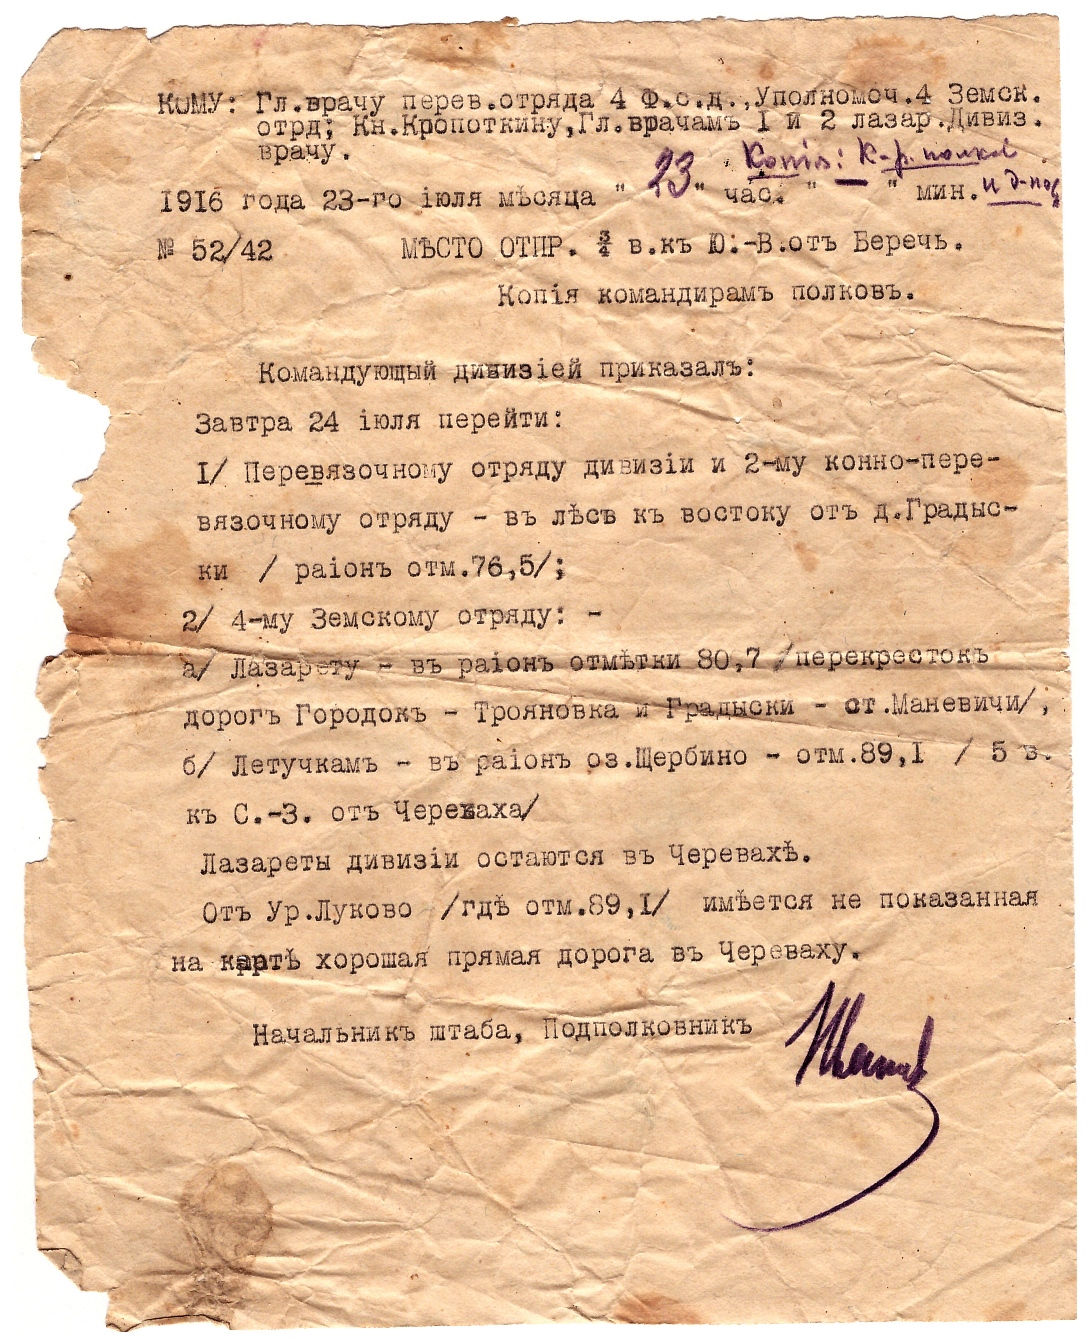 КОМУ: Гл.врачу перев.отряда 4 Ф.с.д.,Уполномоч.4 Земск.
отрд; Кн.Кропоткину,Гл.врачамъ I и 2 лазар.Дивиз.
врачу.
Копія: К-р. полков
1916 года 23-го іюля мѣсяца " 23 " час. " — " мин. и
№ 52/42 МѢСТО ОТПР. ¾ в.къ Ю.-В.отъ Беречь.
Копія командирамъ полковъ.
Командующый дивизіей приказалъ:
Завтра 24 іюля перейти:
I/ Перевязочному отряду дивизіи и 2-му конно-пере-
вязочному отряду - въ лѣсѣ къ востоку отъ д.Градыс-
ки / раіонъ отм.76,5/;
2/ 4-му Земскому отряду: -
а/ Лазарету - въ раіонъ отмѣтки 80,7 /перекрестокъ
дорогъ Городокъ - Трояновка и Градыски - ст.Маневичи/,
б/ Летучкамъ - въ раіонъ оз.Щербино - отм.89,I / 5 в.
къ С.-З. отъ Череваха/
Лазареты дивизіи остаются въ Черевахѣ.
Отъ Ур.Луково /гдѣ отм.89,I/ имѣется не показанная
на картѣ хорошая прямая дорога въ Череваху.
Начальникъ штаба, Подполковникъ